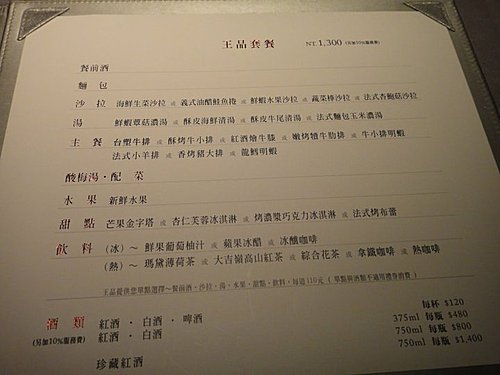 王品套餐 NT. 1,300 (另加10%服務費)
餐前酒
麵 包
沙 拉 海鮮生菜沙拉 或 義式油醋鮭魚捲 或 鮮蝦水果沙拉 或 蔬菜棒沙拉 或 法式杏鮑菇沙拉
湯 鮮蝦蕈菇濃湯 或 酥皮海鮮清湯 或 酥皮牛尾清湯 或 法式麵包玉米濃湯
主 餐 台塑牛排 或 酥烤牛小排 或 紅酒燴牛膝 或 嫩烤犢牛肋排 或 牛小排明蝦
法式小羊排 或 香烤豬大排 或 龍鱈明蝦
酸梅湯·配 菜
水 果 新鮮水果
甜 點 芒果金字塔 或 杏仁芙蓉冰淇淋 或 烤濃樂巧克力冰淇淋 或 法式烤布蕾
飲 料 (冰) ~ 鮮果葡萄柚汁 或 蘋果冰醋 或 冰釀咖啡
(熱) ~ 瑪黛薄荷茶 或 大吉嶺高山紅茶 或 綜合花茶 或 拿鐵咖啡 或 熱咖啡
王品提供您單點選擇~餐前酒、沙拉、湯、水果、甜點、飲料，每道110元 ( 單點與酒類不適用禮券消費 )
每杯 $120
酒 類 紅酒 · 白酒 · 啤酒 375ml 每瓶 $480
(另加10%服務費) 紅酒 · 白酒 750ml 每瓶 $800
珍藏紅酒 750ml 每瓶 $1,400